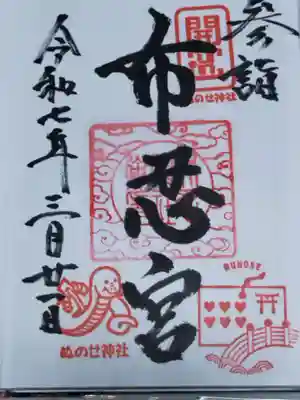 参詣
開運
ぬのせ神社
布忍宮
令和七年三月廿一日
NUNOSE
ぬのせ神社